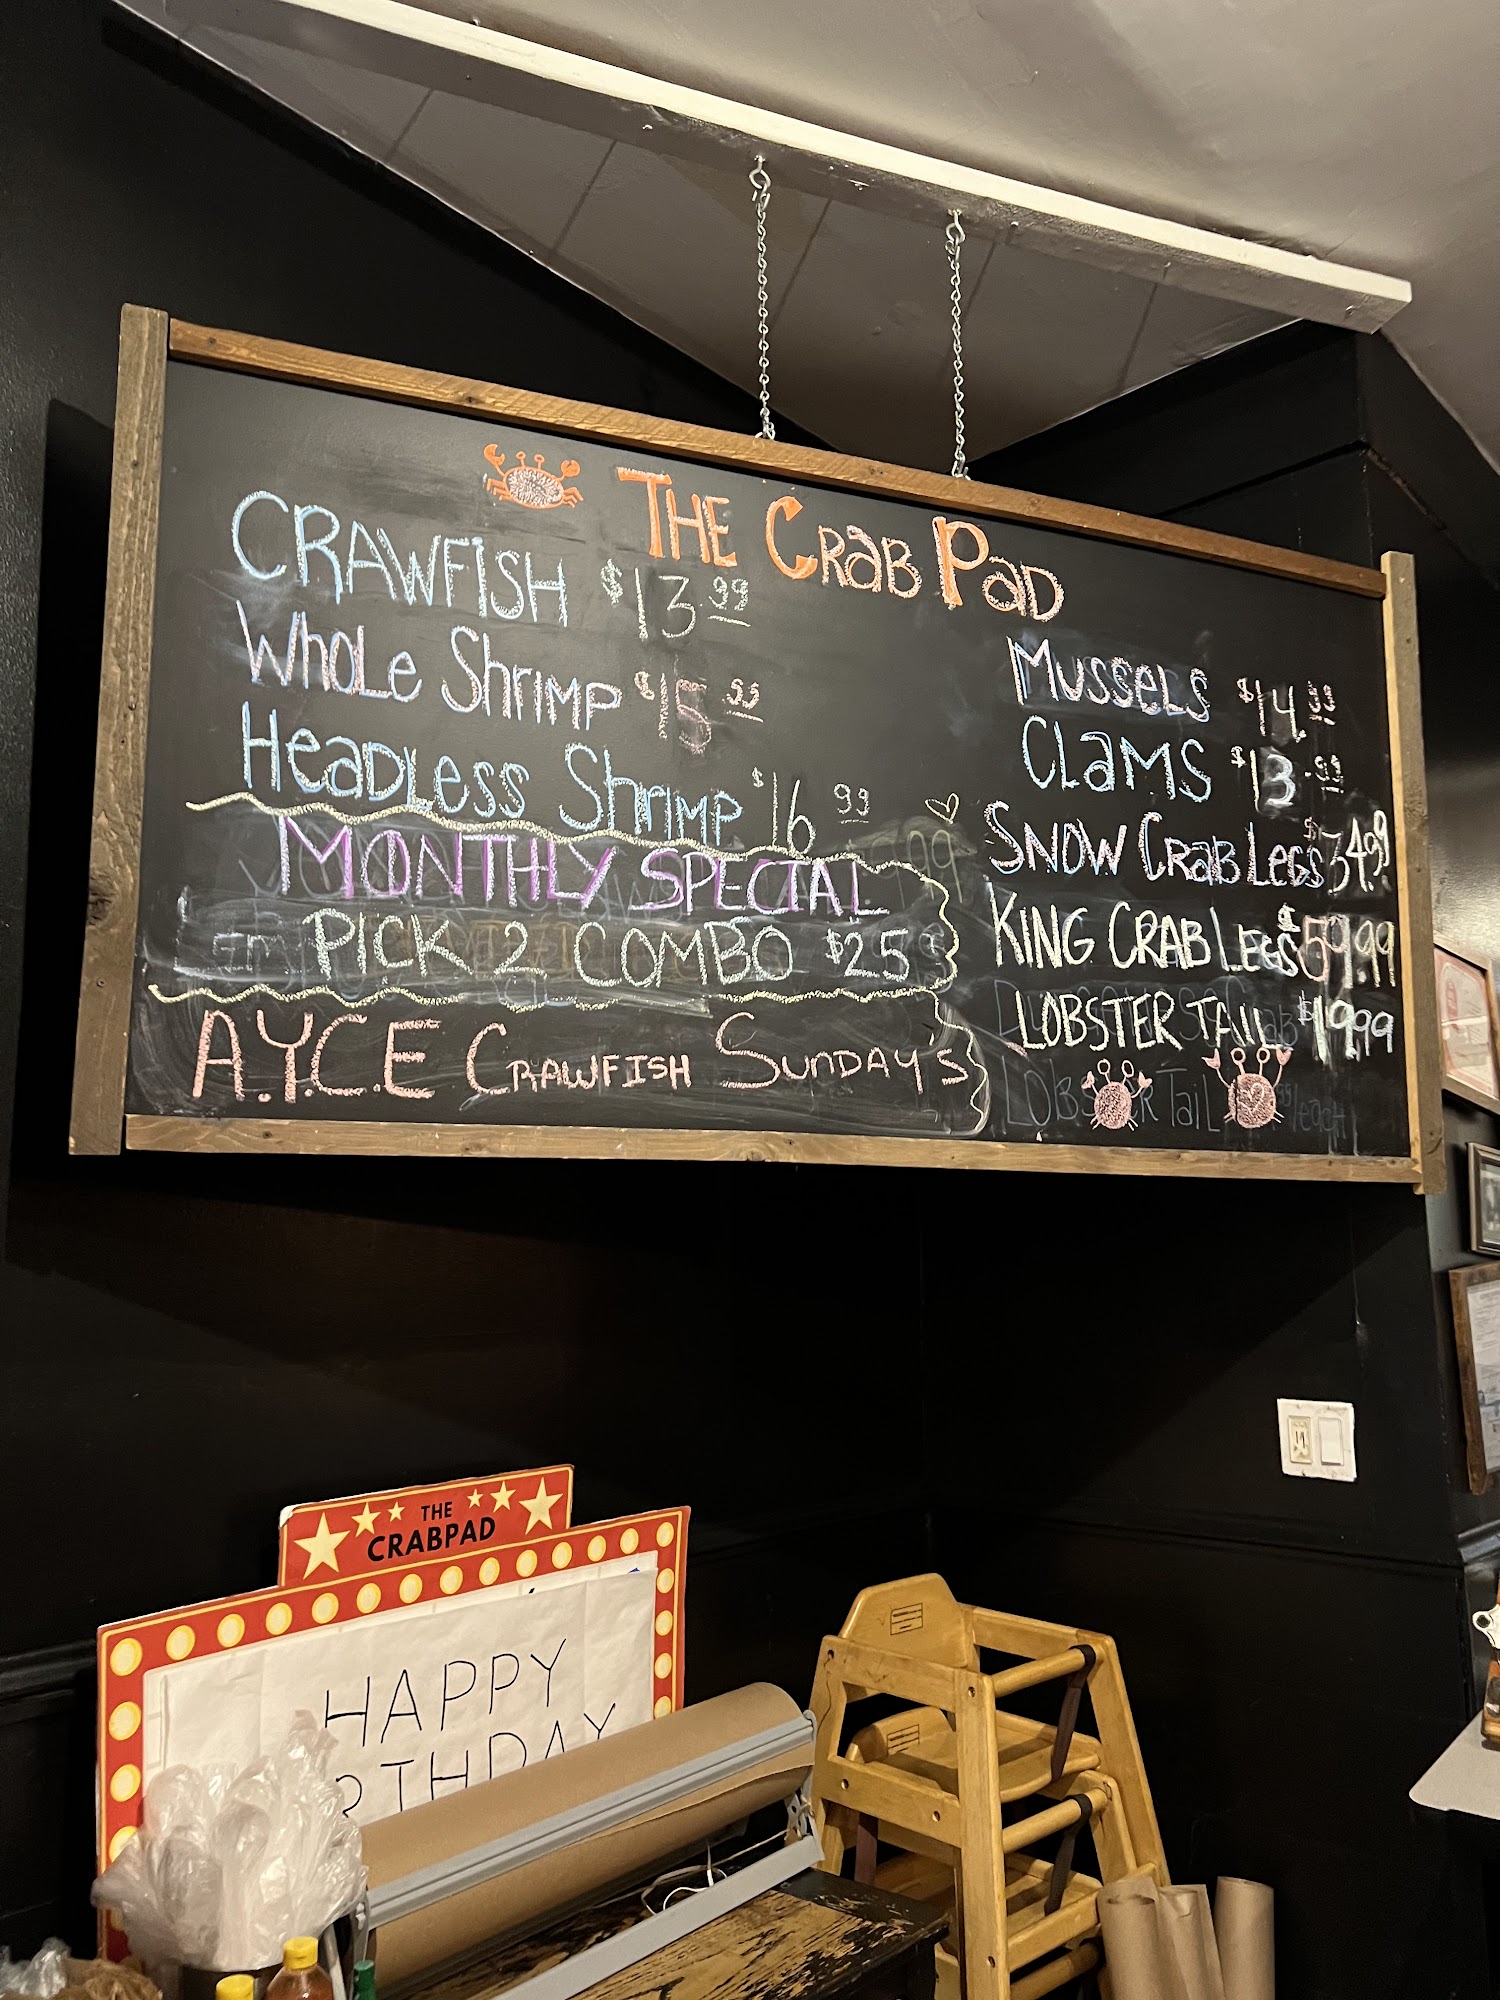 THE CRAB PAD
CRAWFISH $13.99
WHOLE SHRIMP $15.99
HEADLESS SHRIMP $16.99
MONTHLY SPECIAL
PICK 2 COMBO $25
A.Y.C.E CRAWFISH SUNDAY'S
MUSSELS $14.99
CLAMS $13.99
SNOW CRAB LEGS $34.99
KING CRAB LEGS $59.99
LOBSTER TAIL $19.99
LOBSTER TAIL
THE
CRABPAD
HAPPY